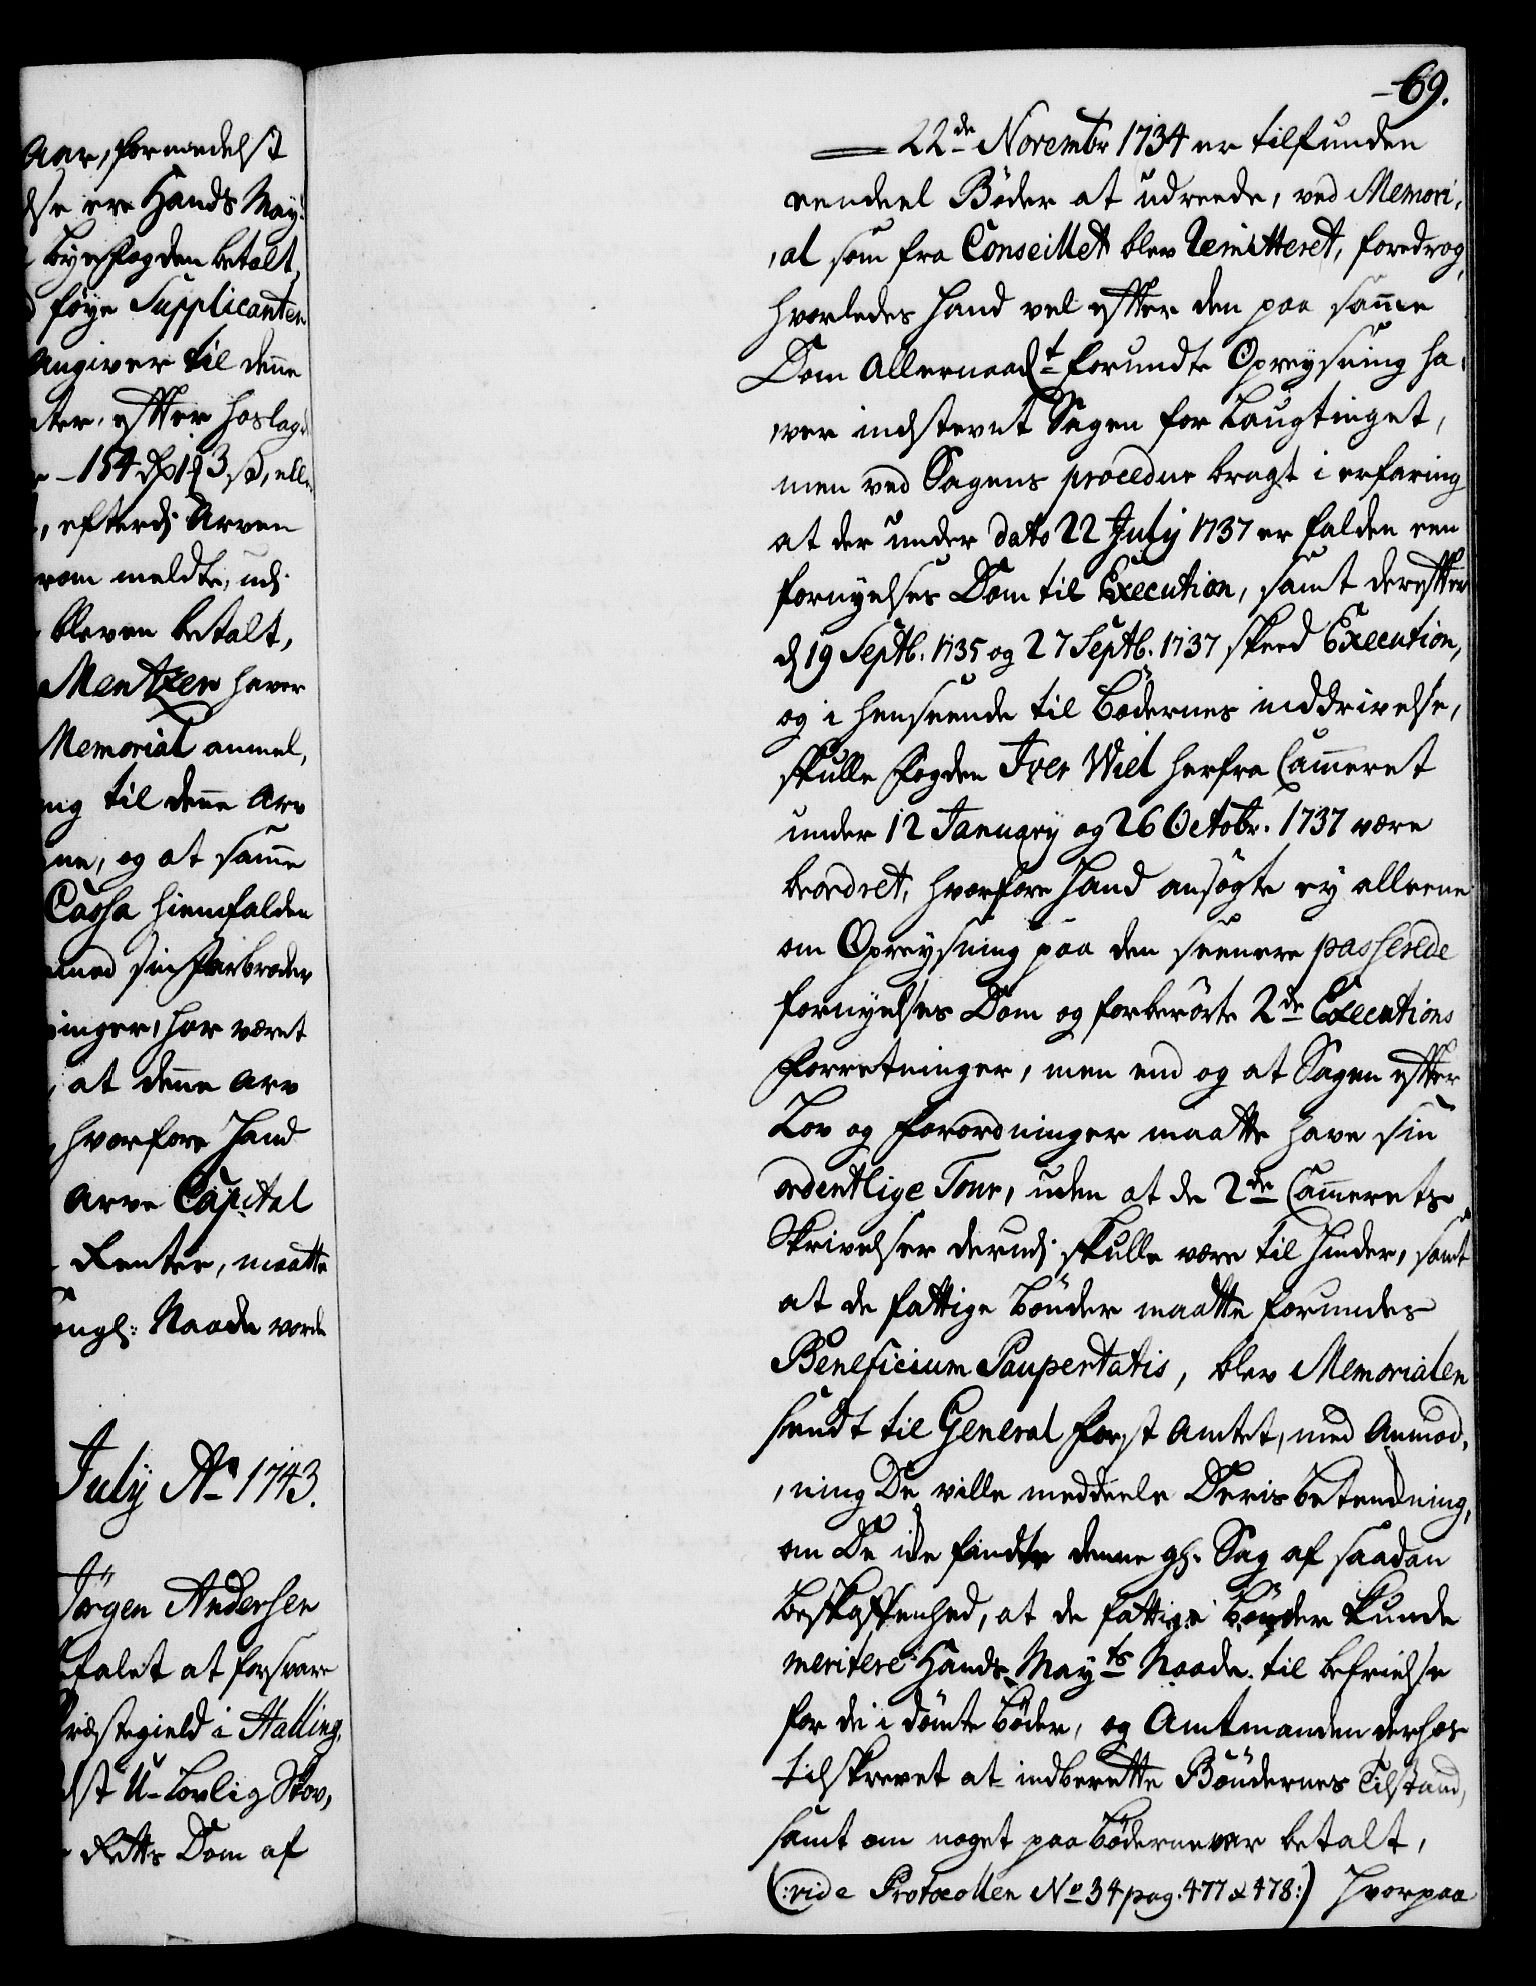 Aar, formedelst
else ere Hands May:
Byefogden betalt,
føye Supplicanten
Angiver til denne
ter, efter hoslag¬
- 154 Rdr 1 mk 3 s, elle
, efterdj Arven
rom meldte, udj
bleven betalt,
Mentzen haver
Memorial anmel,
ng til denne Arv
ne, og at samme
Cassa hiemfalden
med sin Farbroder
inger, har været
, at denne Arv
hvorfore Hand
Arve Capital
Renter, maatte
ongl: Naade vorde
July Ao 1743.
Jørgen Andersen
efalet at forsvare
Præstegield i Halling,
dst U-Lovlig Skov,
Retts Dom af
69.
22de Novembr 1734 er tilfunden
eendeel Bøder at udreede, ved Memori,
,al som fra Conseillet blev Remitteret, foredrog,
hvorledes Hand vel efter den paa samme
Dom Allernaadt forundte Opreysning ha,
,ver indstevnt Sagen for Laugtinget,
men ved Sagens procedur bragt i erfaring
at der under dato 22 July 1737 er falden een
fornyelses Dom til Execution, samt derefter
d 19 Septb. 1735 og 27 Septb. 1737 skeed Execution,
og i henseende til Bødernes inddrivelse,
skulle Fogden Iver Wiel herfra Cammeret
under 12 January og 26 Octobr. 1737 være
beordret, hvorfore Hand ansøgte ey alleene
om Opreysning paa den seenere passerede
fornyelses Dom og forberørte 2de Executions
Forretninger, men end og at Sagen efter
Lov og Forordninger maatte have sin
ordentlige Tour, uden at de 2de Cammerets
Skrivelser derudj skulle være til Hinder, samt
at de fattige Bønder maatte forundes
Beneficium Paupertatis, blev Memorialen
sendt til General Forst Amtet, med Anmod,
,ning De ville meddeele Deris Betenckning,
om De icke fandte denne gl. Sag af saadan
Beskaffenhed, at de fattige Bønder kunde
meritere Hands Mayts Naade til befrielse
for de i dømte Bøder, og Amtmanden derhos
tilskrevet at indberette Bøndernes Tilstand,
samt om noget paa Bøderne var betalt,
(:vide Protocollen No 34 pag. 477 & 478:) Hvorpaa